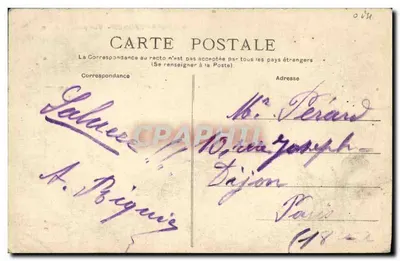 CARTE POSTALE
La Correspondance au recto n'est pas acceptée par tous les pays étrangers
(Se renseigner à la Poste)
Correspondance
Adresse
A.
Mr Pérard
10, rue Joseph-
Dijon
(18
CPAPHIL